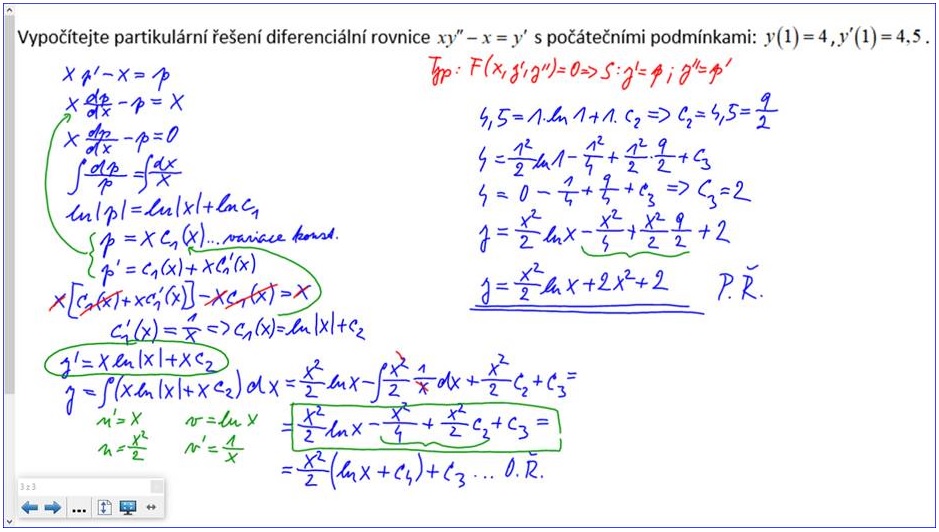 Vypočítejte partikulární řešení diferenciální rovnice xy'' − x = y' s počátečními podmínkami: y(1) = 4, y'(1) = 4,5 .
Typ: F(x, y', y'') = 0 => S: y' = p ; y'' = p'
x p' − x = p
x dp/dx − p = x
x dp/dx − p = 0
∫ dp/p = ∫ dx/x
ln|p| = ln|x| + ln c₁
p = x c₁(x) ... variace konst.
p' = c₁(x) + x c₁'(x)
x[c₁(x) + x c₁'(x)] − x c₁(x) = x
c₁'(x) = 1/x => c₁(x) = ln|x| + c₂
y' = x ln|x| + x c₂
y = ∫(x ln|x| + x c₂) dx = x²/2 ln x − ∫ x²/2 1/x dx + x²/2 c₂ + c₃ =
u' = x v = ln x
u = x²/2 v' = 1/x
= x²/2 ln x − x²/4 + x²/2 c₂ + c₃ =
= x²/2 (ln x + c₄) + c₃ ... O.Ř.
4,5 = 1 · ln 1 + 1 · c₂ => c₂ = 4,5 = 9/2
4 = 1²/2 ln 1 − 1²/4 + 1²/2 · 9/2 + c₃
4 = 0 − 1/4 + 9/4 + c₃ => c₃ = 2
y = x²/2 ln x − x²/4 + x²/2 9/2 + 2
y = x²/2 ln x + 2x² + 2 P.Ř.
3 z 3